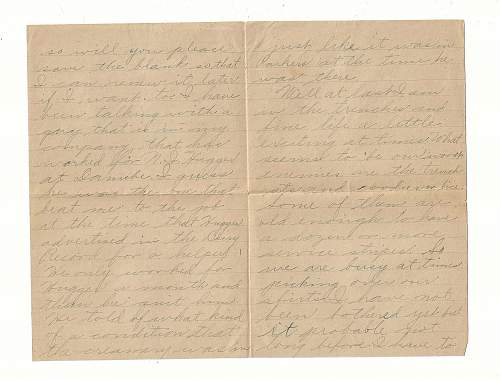 so will you please
save the blank so that
I can renew it later
if I want to. I have
been talking with a
guy that is in my
company that has
worked for N. J. Hugger
at Danube. I guess
he was the one that
beat me to the job
at the time that Hugger
advertised in the Dairy
Record for a helper!
He only worked for
Hugger a month and
then he quit him
He told of what kind
of a condition that
the creamery was in
just like it was in
at the time he
was there
Well at last I am
in the trenches and
fine life a little
exciting at times. What
seems to be our worst
enemies are the trench
rats and cooties or lice.
Some of them are
old enough to have
a dozen or more
service stripes. So
we are busy at times
picking over our
shirts. I have not
been bothered yet but
it probable just
long before I have to